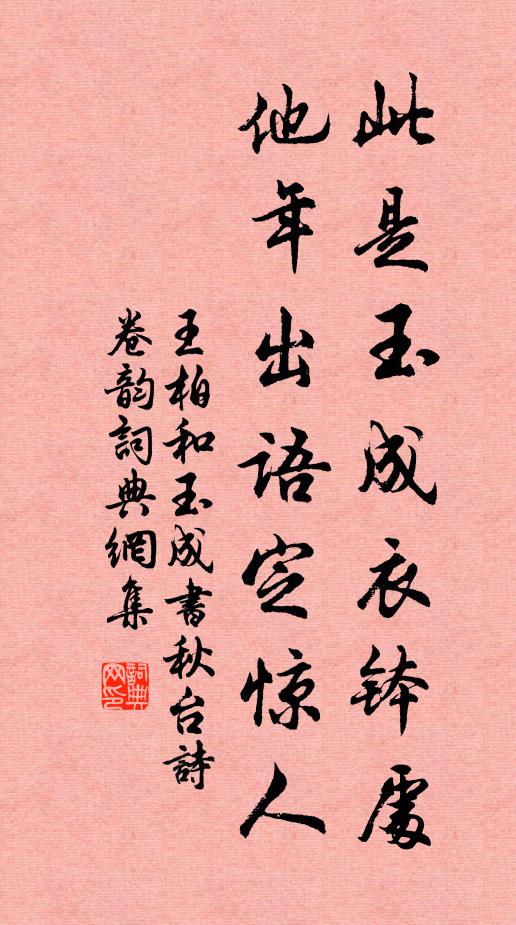 此是玉成衣钵處
他年出語定惊人
王柏和玉成書秋台詩
卷韵詞典網集
詞典网印